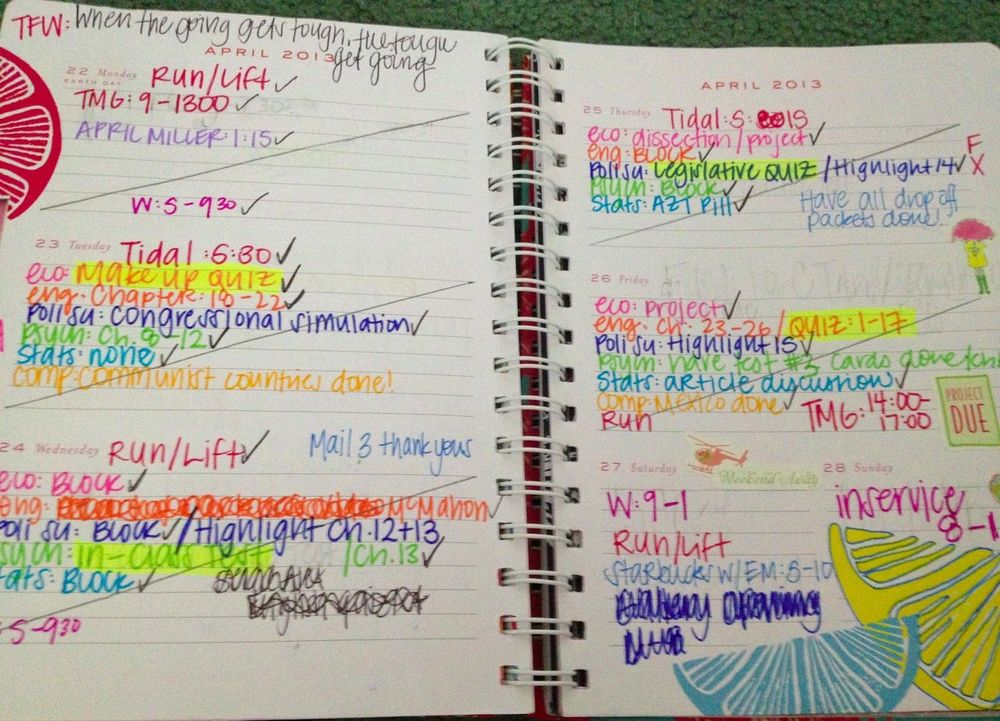 TFW: When the going gets tough, the tough
get going
APRIL 2013
22 Monday Run/Lift ✓
EARTH DAY
TMG: 9-1300 ✓
APRIL MILLER: 1:15 ✓
W: 5-930 ✓
23 Tuesday Tidal: 5:30 ✓
eco: Make up QUIZ ✓
eng: Chapter: 18-22 ✓
Poli su: congressional simulation ✓
Psych: Ch. 8-12 ✓
Stats: none ✓
comp: communist countries done!
24 Wednesday Run/Lift ✓ Mail 3 thank yous
eco: BLOCK ✓
eng: McMahon ✓
Poli su: BLOCK ✓ / Highlight Ch. 12+13
psych: in-class Test /Ch. 13 ✓
stats: BLOCK ✓
: 5-930
APRIL 2013
25 Thursday Tidal: 5: 15
eco: dissection/project ✓
eng: BLOCK ✓ F
Poli su: Legislative QUIZ / Highlight 14 ✓ X
Psych: Block ✓
Stats: AZT Pill ✓ Have all drop off
packets done!
26 Friday
eco: project ✓
eng: ch. 23-26 / QUIZ: 1-17
Poli su: Highlight 15 ✓
Psych: have test #3 cards done
Stats: article discussion ✓
Comp: Mexico done ✓ TMG: 14:00-
Run 17:00
PROJECT
DUE
27 Saturday
Weekend Away
28 Sunday
W: 9-1
inservice
8-1
Run/Lift
Starbucks W/EM: 8-10